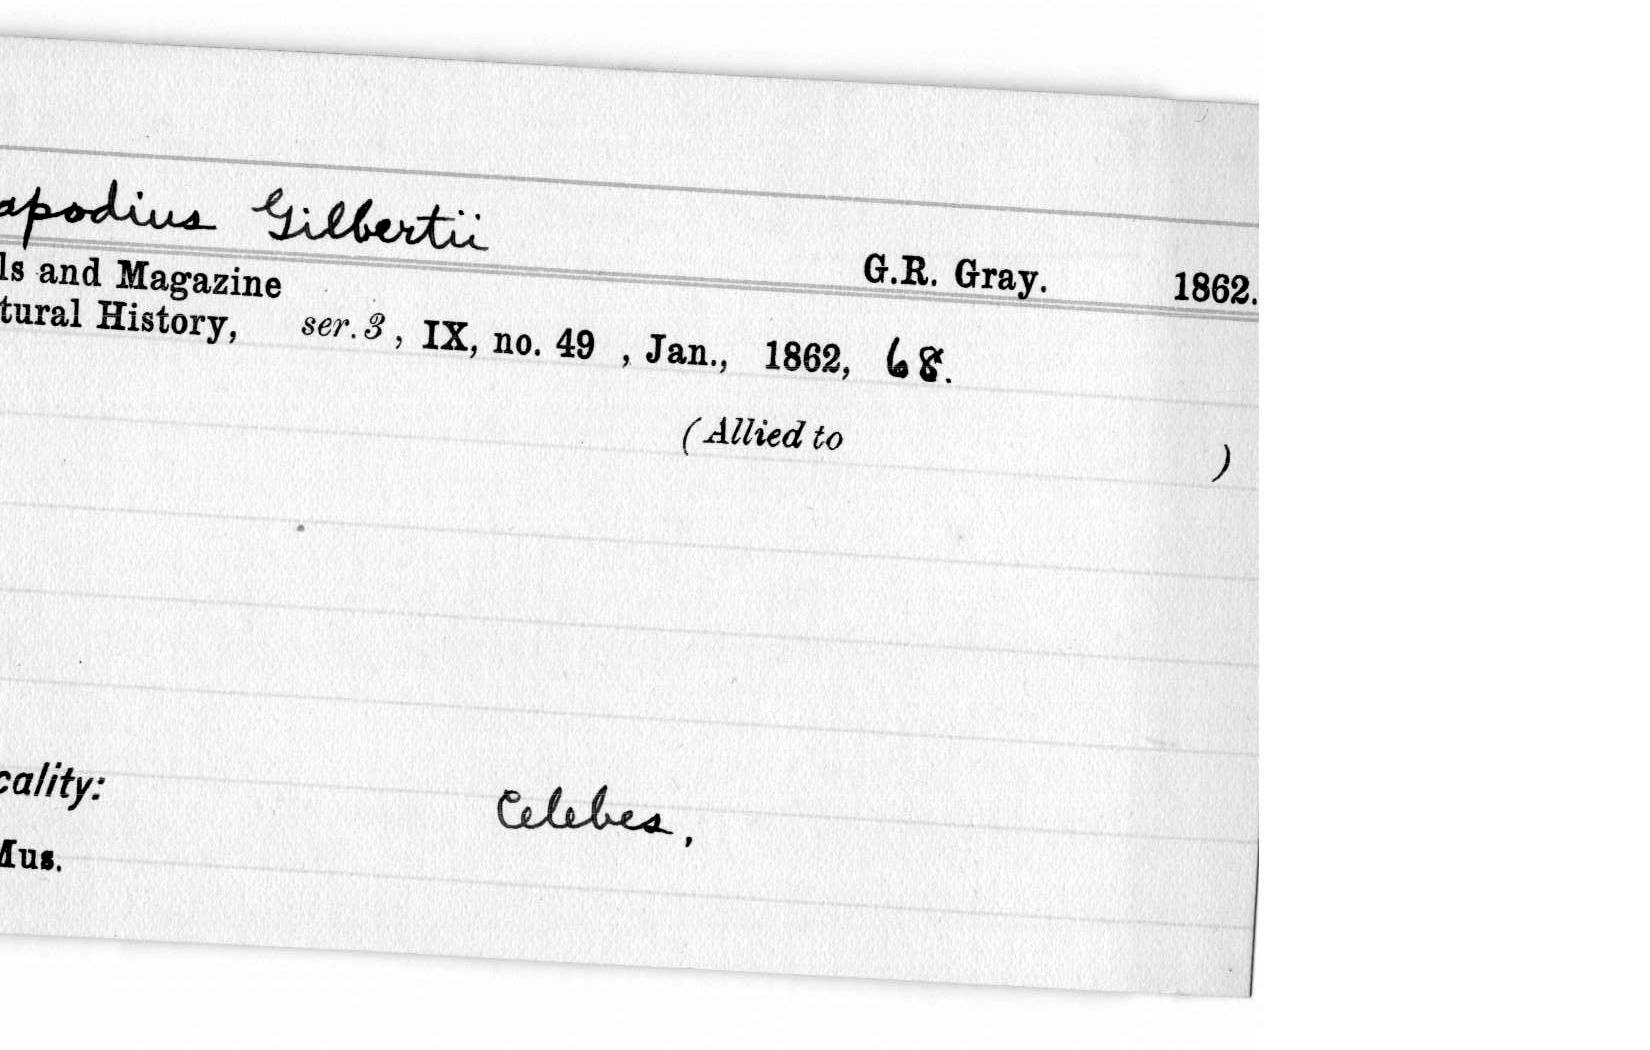 apodius Gilbertii
G.R. Gray. 1862.
ls and Magazine
tural History, ser. 3, IX, no. 49, Jan., 1862, 68.
(Allied to )
cality: Celebes,
Mus.